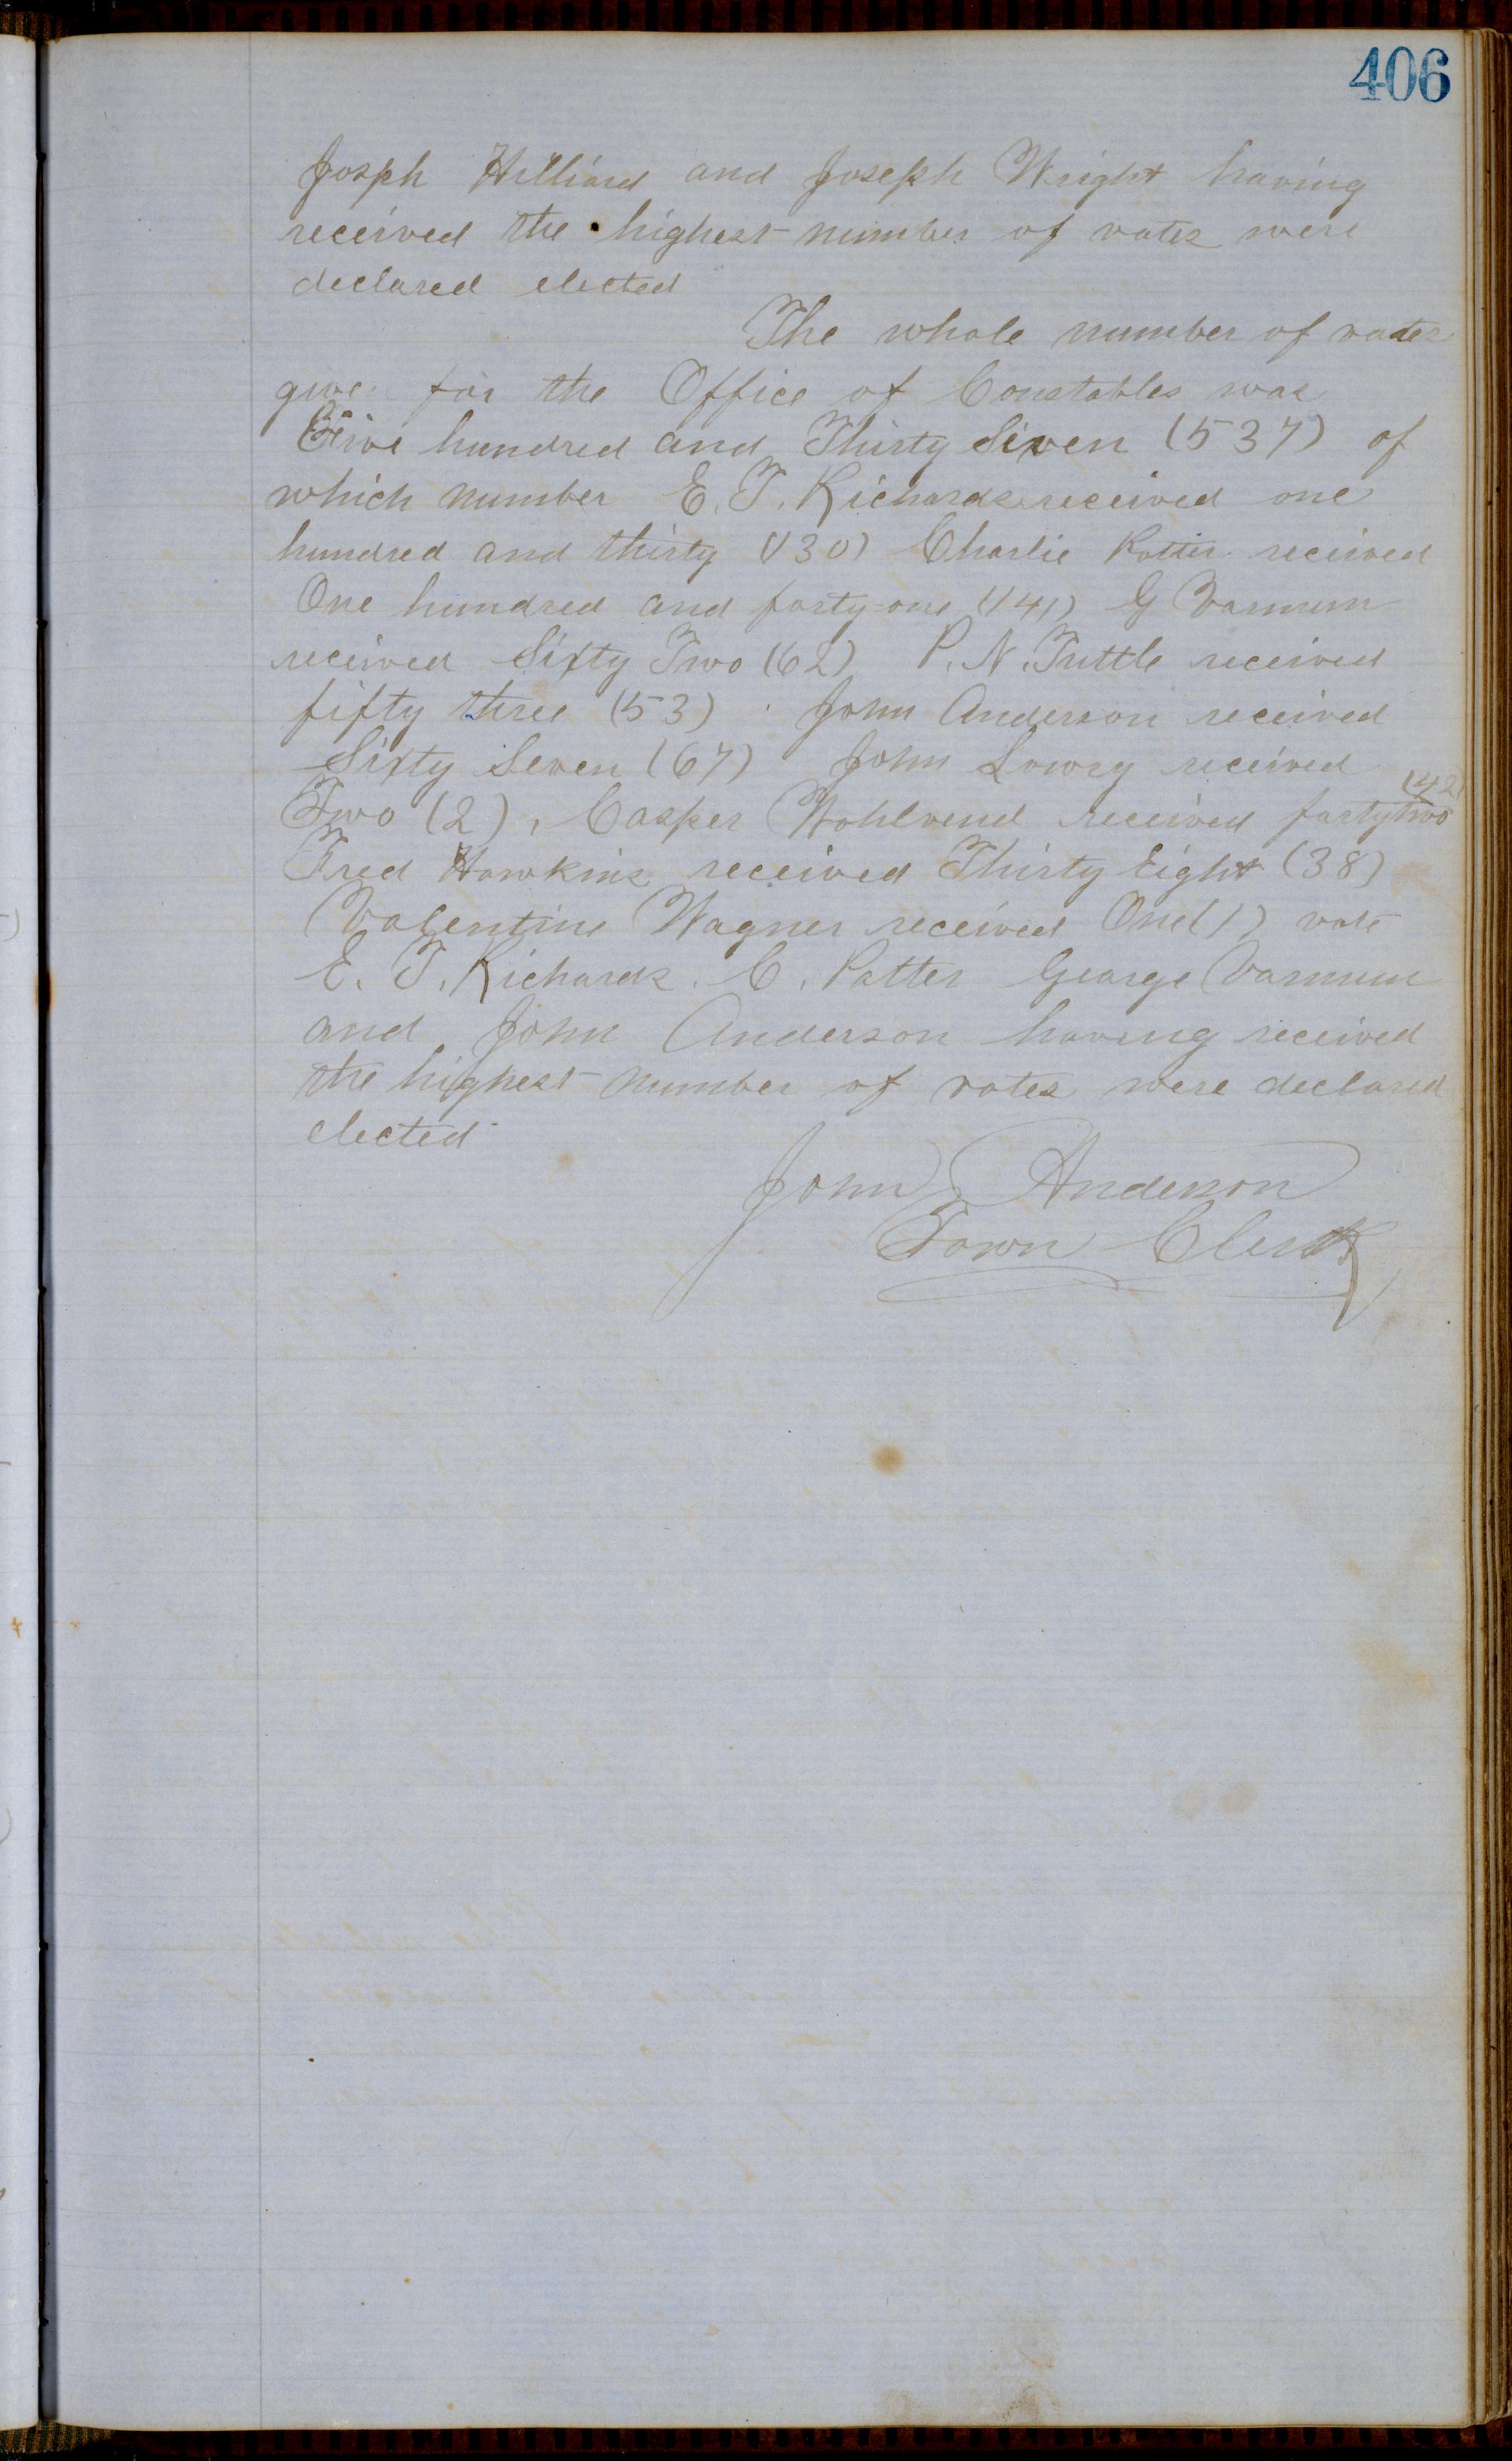 406
Josph Hilliard and Joseph Wright having
received the highest number of votes were
declared elected
The whole number of votes
given for the Office of Constables was
Five hundred and Thirty Seven (537) of
which number E. T. Richards received one
hundred and thirty (130) Charlie Potter received
One hundred and forty-one (141) G Varnum
received Sixty Two (62) P. N. Tuttle received
fifty three (53) John Anderson received
Sixty Seven (67) John Lowry received
Two (2), Casper Wohlvend received forty two (42)
Fred Hawkins received Thirty Eight (38)
Valentine Wagner received One (1) vote
E. T. Richards. C. Potter George Varnum
and John Anderson having received
the highest number of votes were declared
elected
John Anderson
Town Clerk